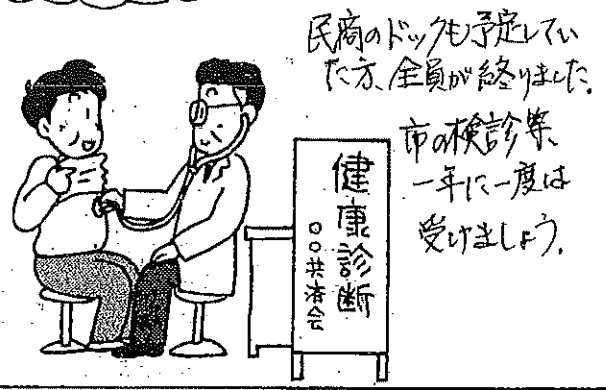 民商のドックも予定してい
た方、全員が終りました。
市の検診等、
一年に一度は
受けましょう。
健康診断
○○共済会